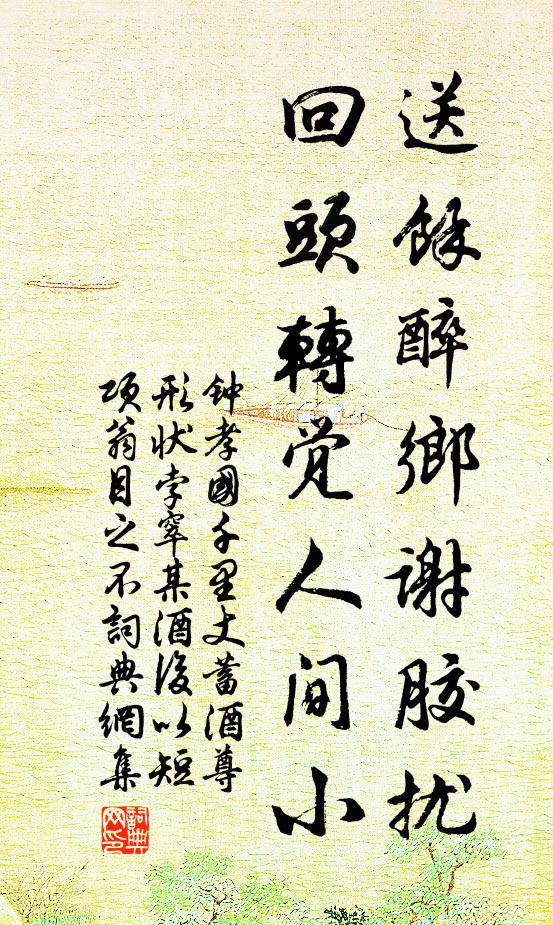 送餘醉鄉謝膠扰
回頭轉覚人间小
钟孝國千里丈蓄酒尊
形状孛窣某酒後以短
项翁目之不詞典網集
詞典
网印